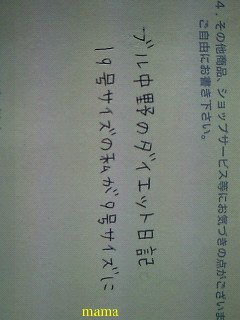 4．その他商品、ショップサービス等にお気づきの点がございま
ご自由にお書き下さい。
ブル中野のダイエット日記
19号サイズの私が9号サイズに
mama